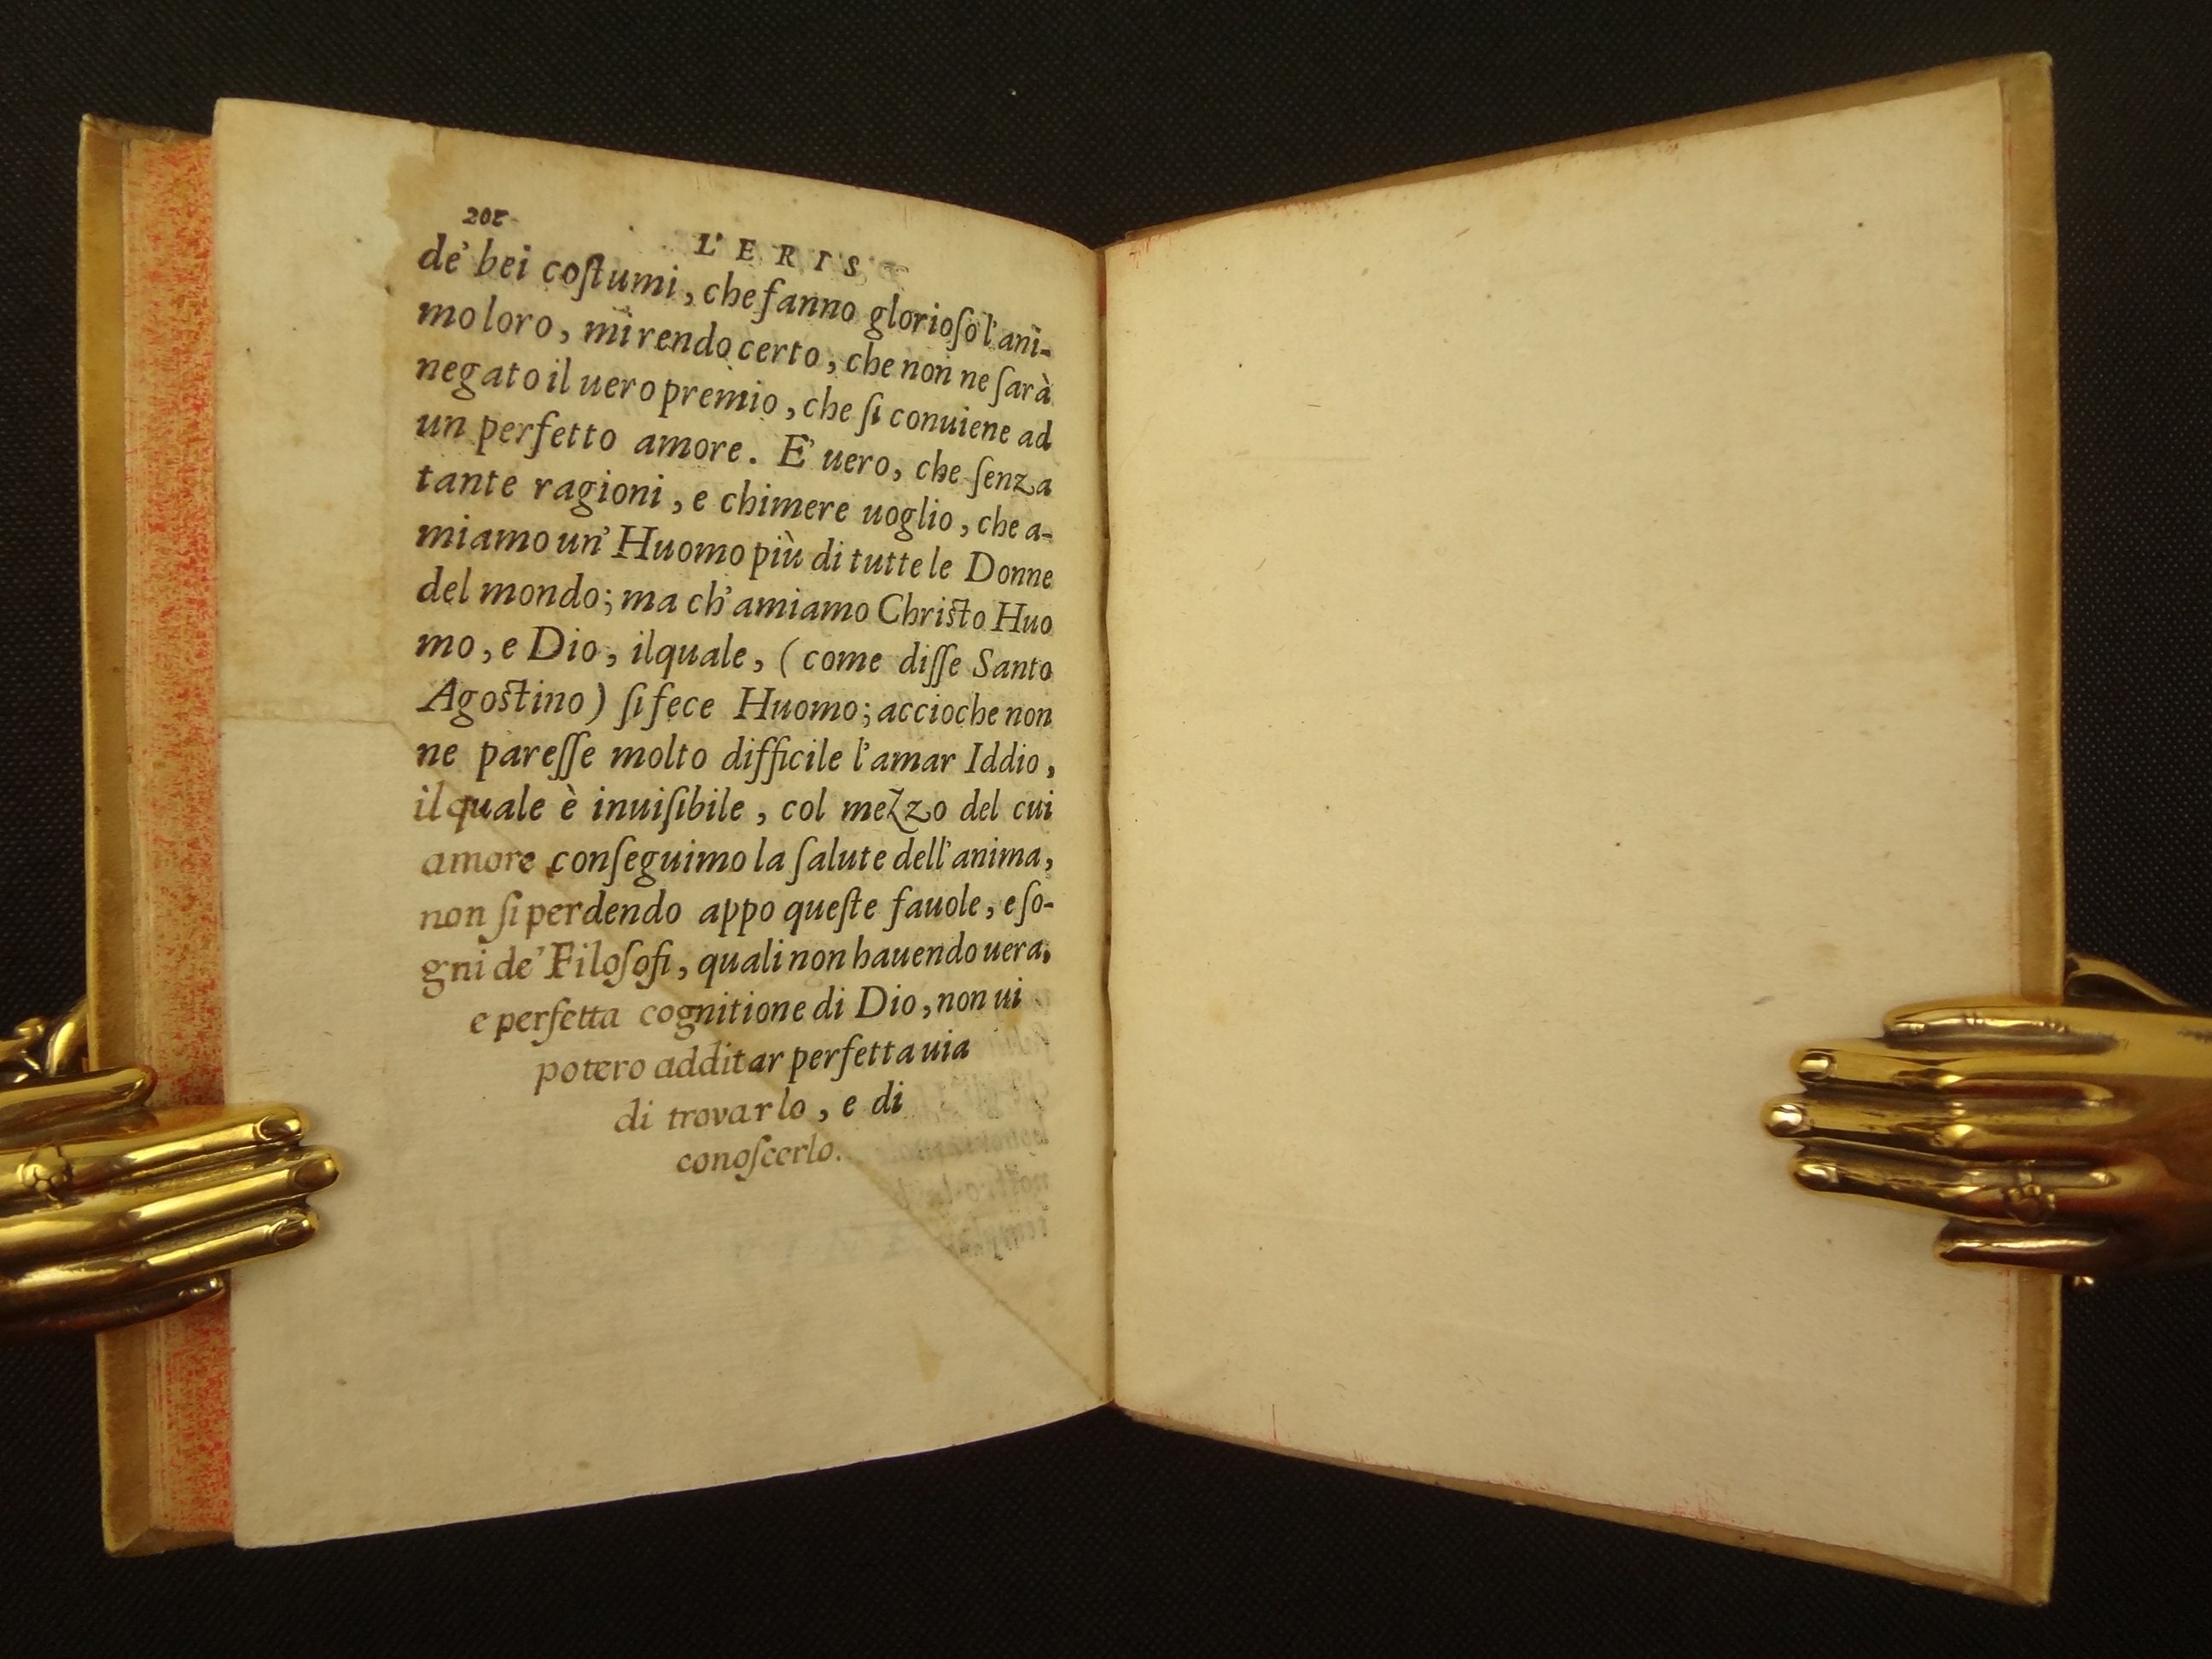 202
L'ERIS
de' bei coſtumi, che fanno glorioſo l'ani-
mo loro, mi rendo certo, che non ne ſarà
negato il uero premio, che ſi conuiene ad
un perfetto amore. E' uero, che ſenza
tante ragioni, e chimere uoglio, che a-
miamo un' Huomo più di tutte le Donne
del mondo; ma ch'amiamo Chriſto Huo
mo, e Dio, ilquale, (come diſſe Santo
Agoſtino) ſi fece Huomo; accioche non
ne pareſſe molto difficile l'amar Iddio,
il quale è inuiſibile, col mezzo del cui
amore conſeguimo la ſalute dell'anima,
non ſi perdendo appo queſte fauole, e ſo-
gni de' Filoſofi, quali non hauendo uera,
e perfetta cognitione di Dio, non ui
potero additar perfetta uia
di trovarlo, e di
conoſcerlo.